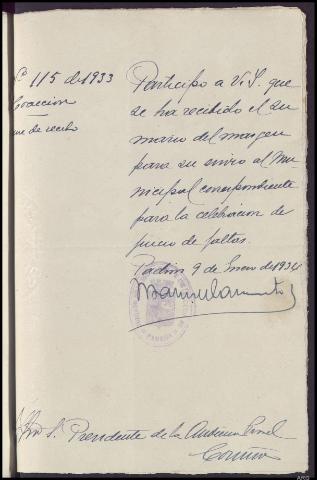 º 115 de 1933
Coaccion
use de recibo
Participo a V.S. que
se ha recibido el su
mario del margen
para su envio al Mu
nicipal correspondiente
para la celebracion de
juicio de faltas.
Padron 9 de Enero de 1934
Sr. Presidente de la Audiencia Provincial
Coruña